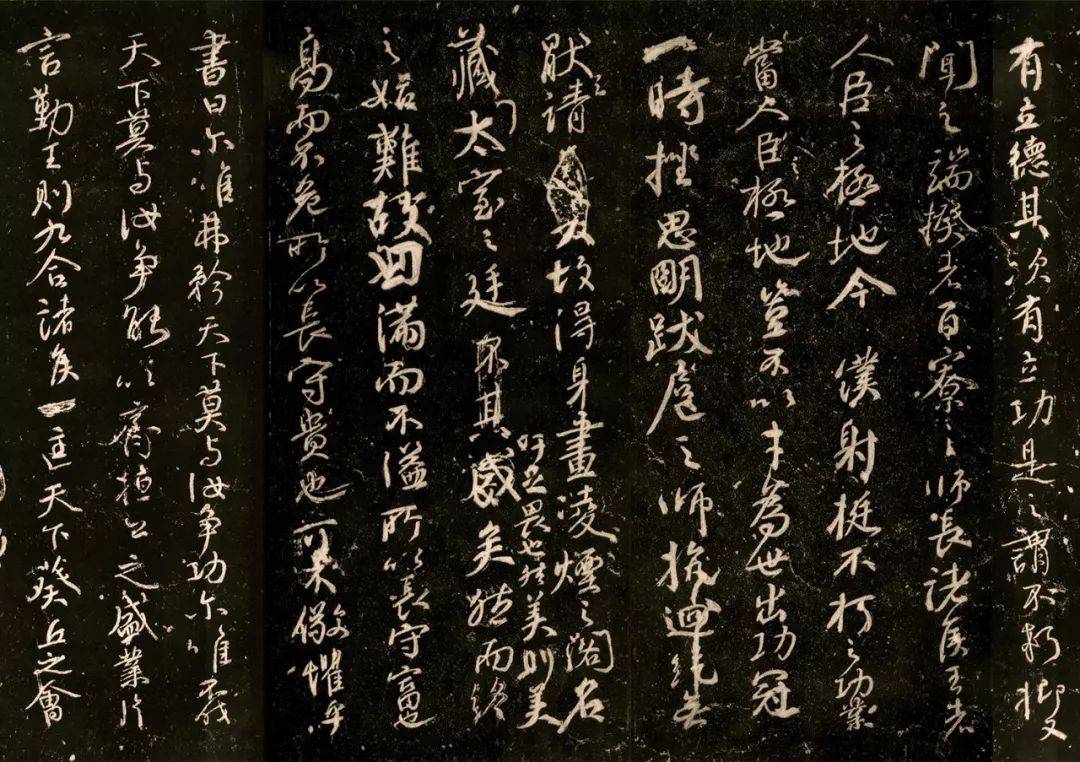 有立德其次有立功是之謂不朽抑又
聞之端揆者百寮之師長諸侯王者
人臣之極地今僕射挺不朽之功業
當人臣極地豈不以才為世出功冠
一時挫思明跋扈之師抗迴紇無
猒之請故得身畫凌煙之閣名
藏太室之廷吁足畏也然美則美矣然而終
之始難故曰滿而不溢所以長守富也
高而不危所以長守貴也可不儆懼乎
書曰尔唯弗矜天下莫与汝爭功尔唯不伐
天下莫与汝爭能以齊桓公之盛業片
言勤王則九合諸侯一匡天下葵丘之會